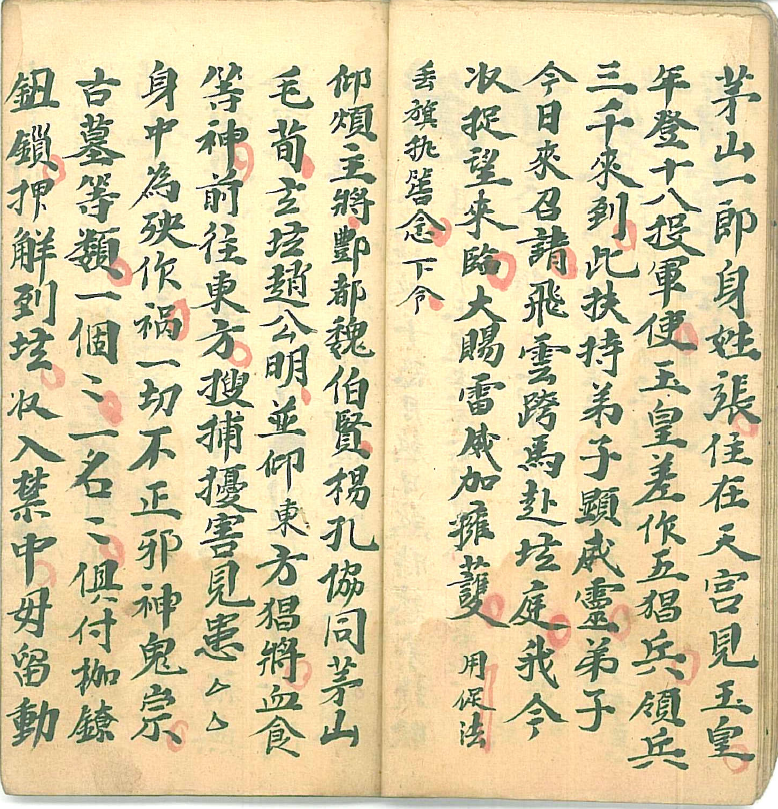 茅山一郎身姓張住在天宮見玉皇
年登十八投軍使玉皇差作五猖兵領兵
三千來到此扶持弟子顯威靈弟子
今日來召請飛雲跨馬赴坛庭我今
收捉望來臨大賜雷威加擁護 用促法
丢旗执簽念下令
仰煩主將酆都魏伯賢楊孔協同茅山
毛荀玄坛趙公明並仰東方猖將血食
等神前往東方搜捕擾害見患厶厶
身中為殃作禍一切不正邪神鬼祟
古墓等類一個〻一名〻俱付枷鐐
鈕鎖押解到坛收入禁中毋留動